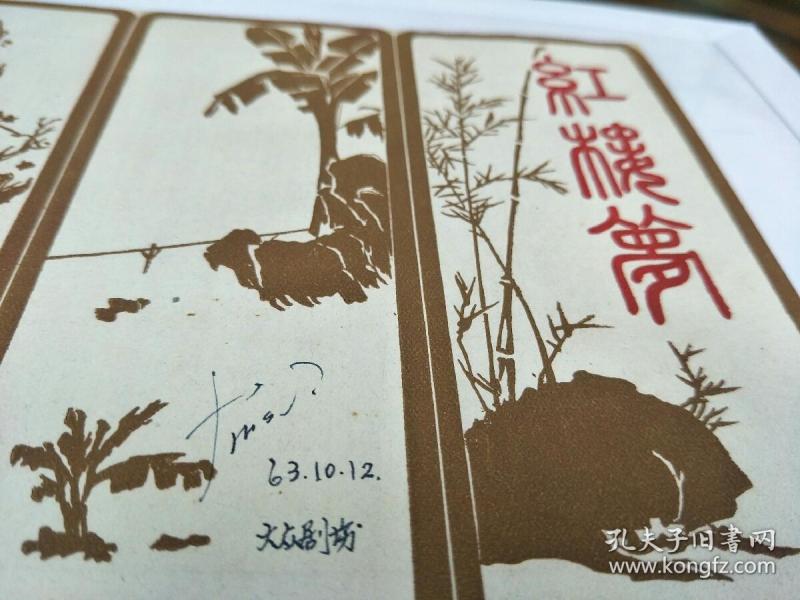 紅樓夢
63.10.12.
大众剧场
孔夫子旧書网
www.kongfz.com